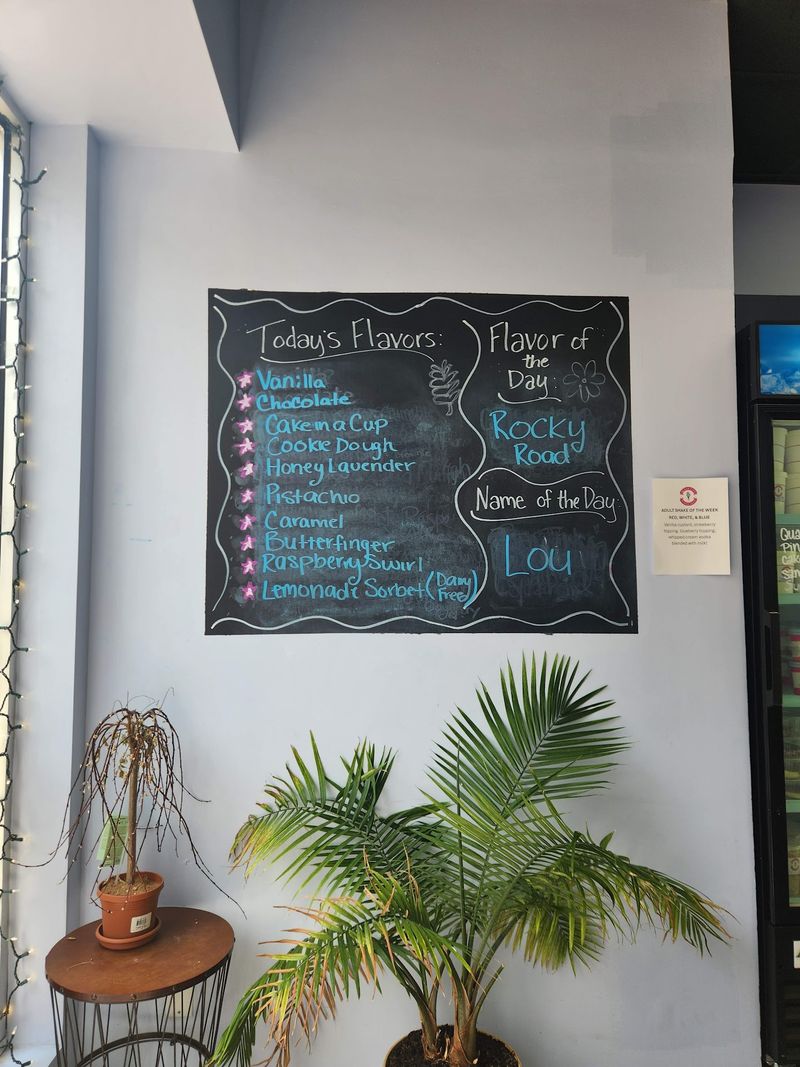 Today's Flavors:
Vanilla
Chocolate
Cake in a Cup
Cookie Dough
Honey Lavender
Pistachio
Caramel
Butterfinger
Raspberry Swirl
Lemonade Sorbet (Dairy Free)
Flavor of
the
Day:
Rocky
Road
Name of the Day:
Lou
ADULT SHAKE OF THE WEEK
RED, WHITE, & BLUE
Vanilla custard, strawberry
topping, blueberry topping,
whipped cream vodka
blended with milk!